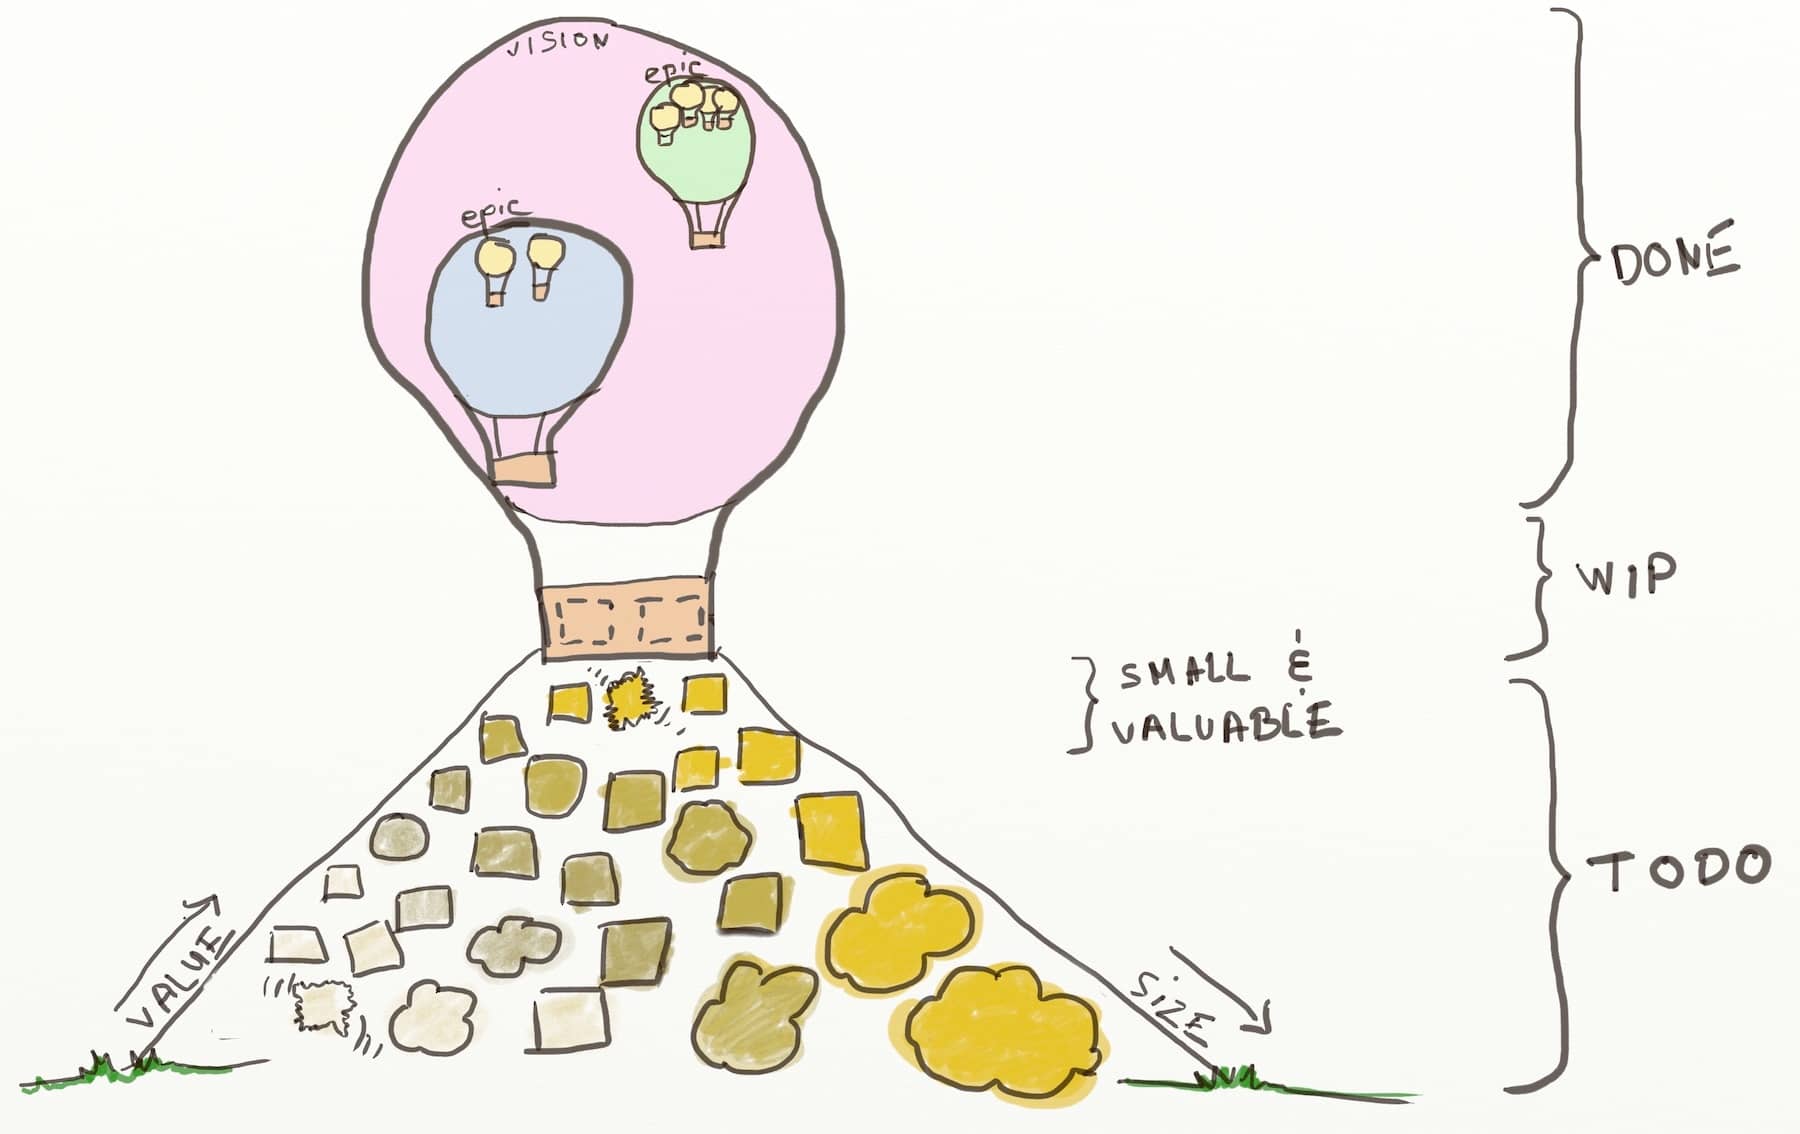 VISION
epic
epic
DONE
WIP
SMALL &
VALUABLE
TODO
VALUE
SIZE